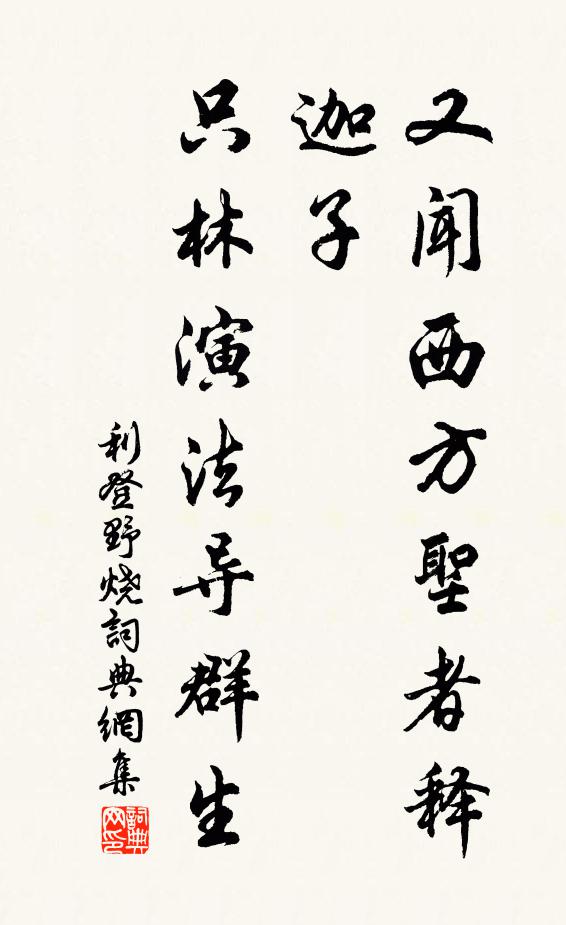 又闻西方聖者释
迦子
只林演法导群生
利登野烧詞典網集
詞典网印